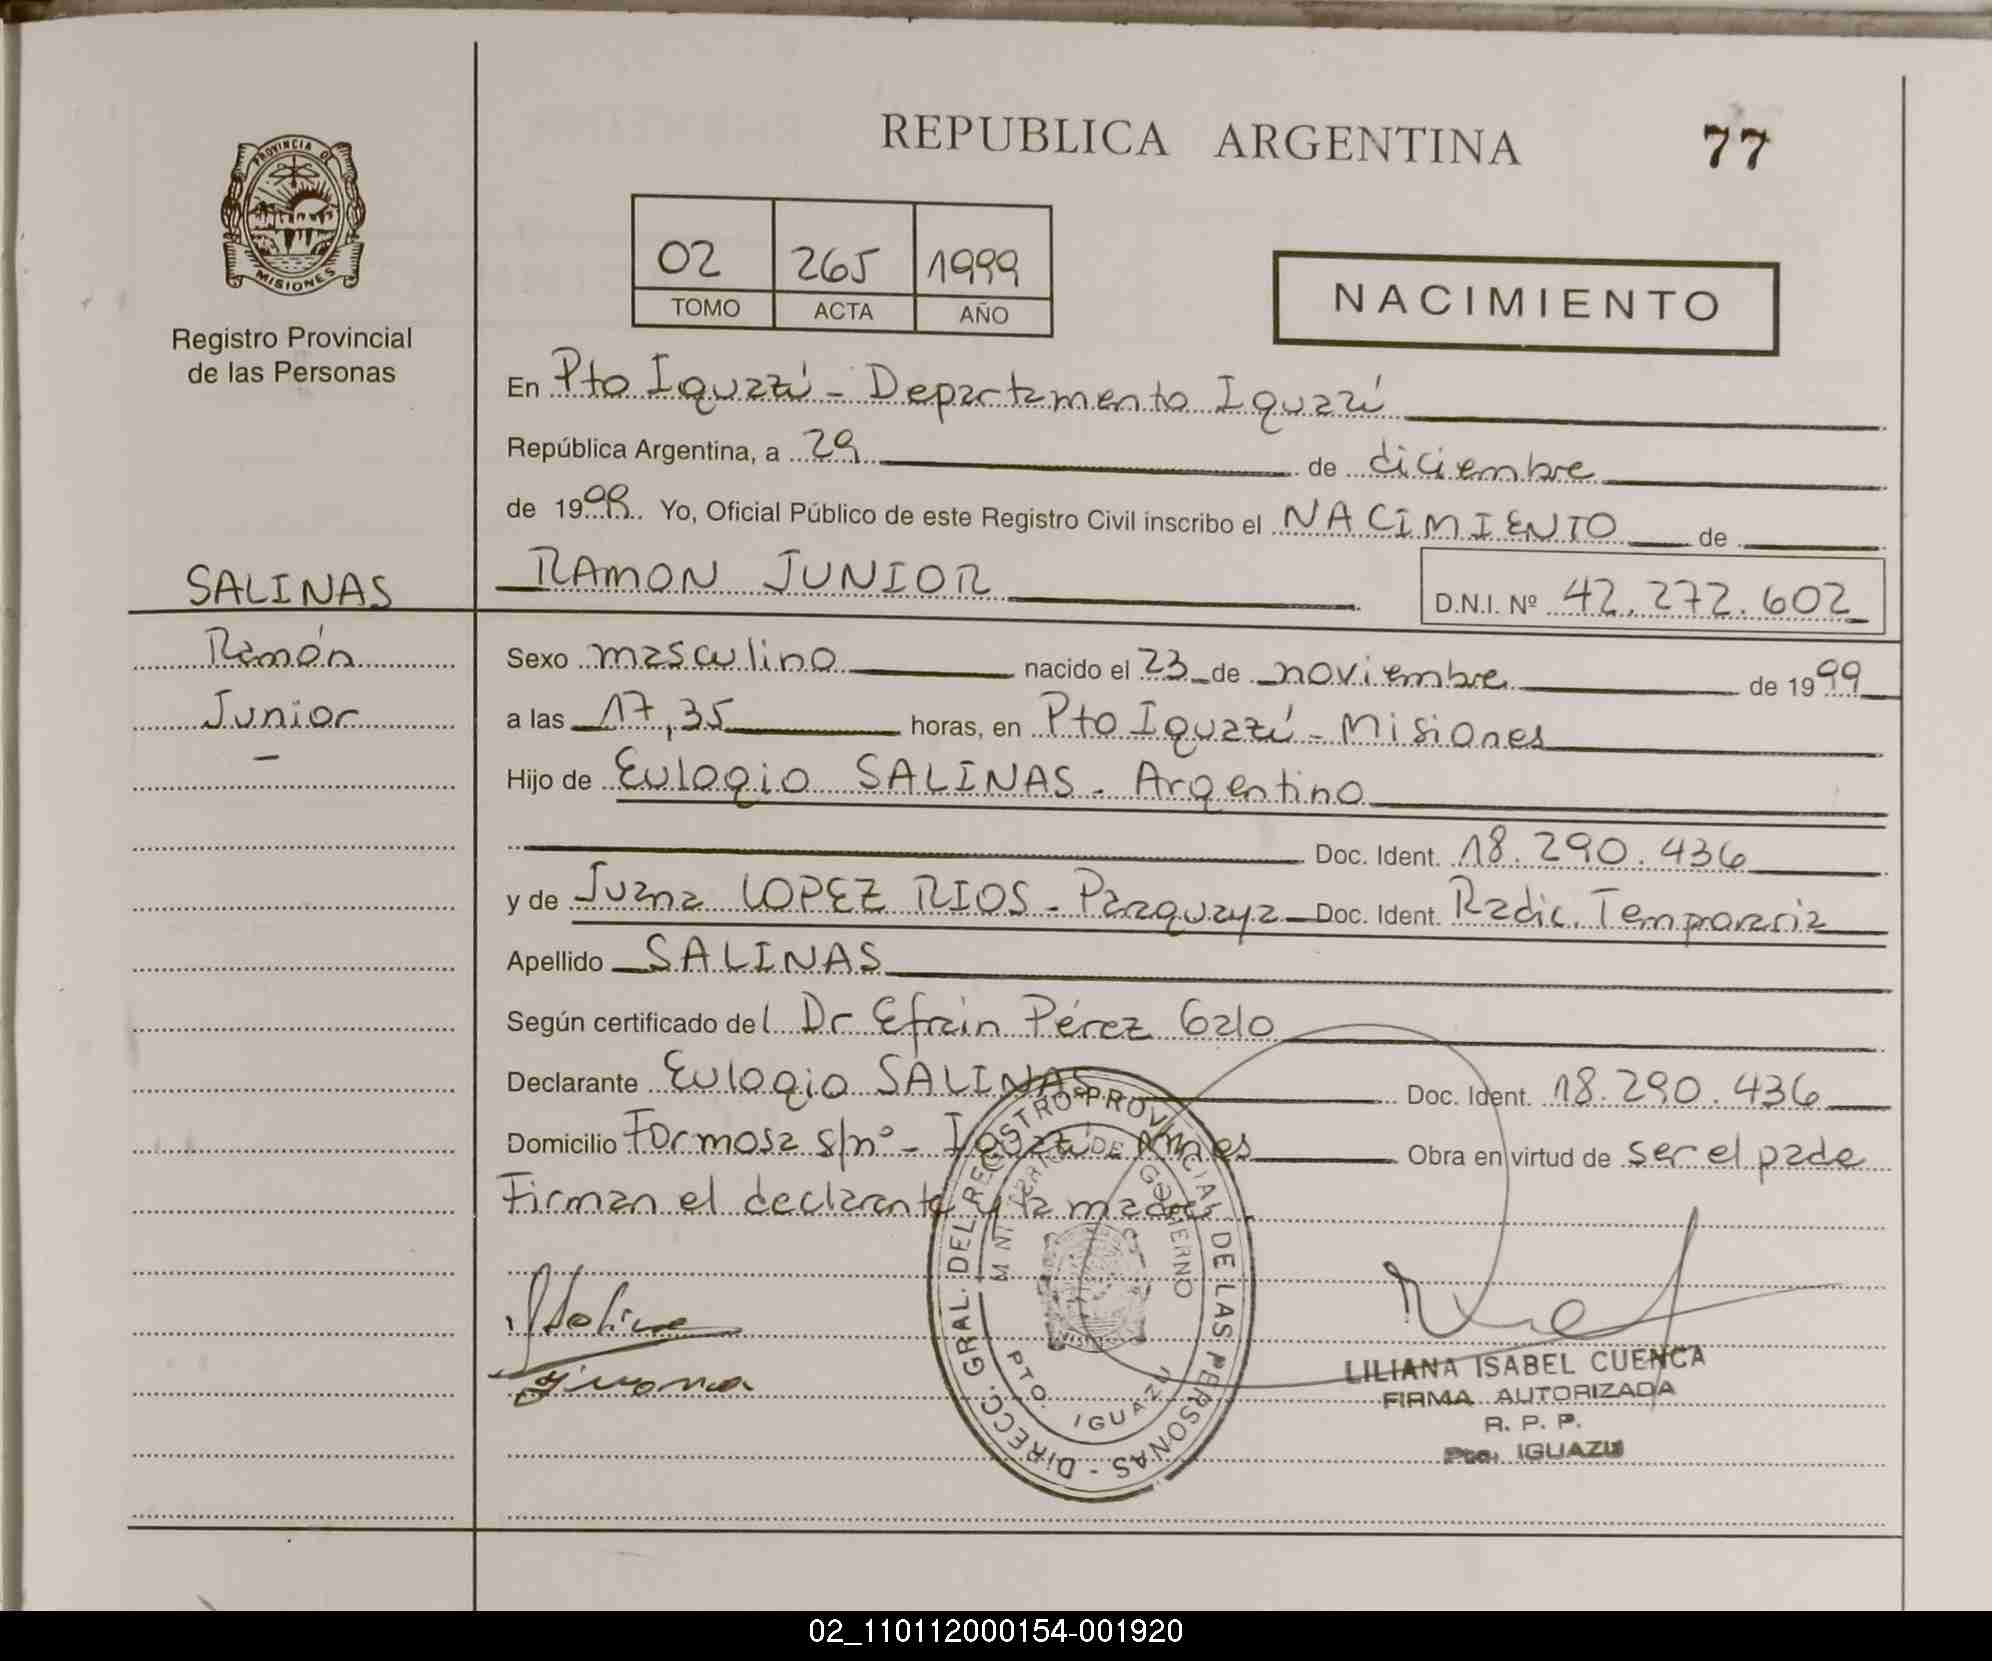 REPUBLICA ARGENTINA
77
PROVINCIA DE
MISIONES
Registro Provincial
de las Personas
02 265 1999
TOMO ACTA AÑO
NACIMIENTO
En Pto Iguazú - Departamento Iguazú
República Argentina, a 29 de diciembre
de 1999. Yo, Oficial Público de este Registro Civil inscribo el NACIMIENTO de
SALINAS
RAMON JUNIOR
D.N.I. Nº 42.272.602
Ramón
Junior
-
Sexo masculino nacido el 23 de noviembre de 1999
a las 17,35 horas, en Pto Iguazú - Misiones
Hijo de Eulogio SALINAS - Argentino
Doc. Ident. 18.290.436
y de Juana LOPEZ RIOS - Paraguaya Doc. Ident. Radic. Temporaria
Apellido SALINAS
Según certificado del Dr Efrain Pérez Galo
Declarante Eulogio SALINAS Doc. Ident. 18.290.436
Domicilio Formosa s/nº - Iguazú Mnes Obra en virtud de ser el padre
Firman el declarante y la madre.
DIRECC. GRAL. DEL REGISTRO PROVINCIAL DE LAS PERSONAS -
MINISTERIO DE GOBIERNO
PTO. IGUAZU
LILIANA ISABEL CUENCA
FIRMA AUTORIZADA
R. P. P.
Pto. IGUAZU
02_110112000154-001920